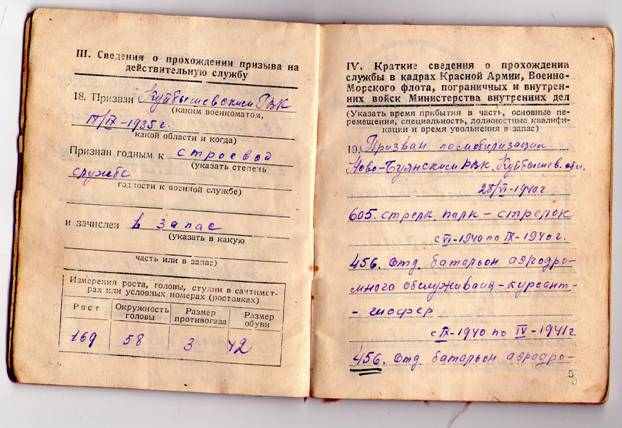 III. Сведения о прохождении призыва на
действительную службу
18. Призван Куйбышевским РВК
(каким военкоматом,
IV/IX-1935 г.
какой области и когда)
Признан годным к строевой
(указать степень
службе
годности к военной службе)
и зачислен в запас
(указать в какую
часть или в запас)
Измерения роста, головы, ступни в сантимет-
рах или условных номерах (ростовках)
Рост Окружность головы Размер противогаза Размер обуви
169 58 3 42
IV. Краткие сведения о прохождении
службы в кадрах Красной Армии, Военно-
Морского флота, пограничных и внутрен-
них войск Министерства внутренних дел
(Указать время прибытия в часть, основные пе-
ремещения, специальность, должностные квалифи-
кации и время увольнения в запас)
19. Призван по мобилизации
Ново-Буянским РВК, Куйбышев. обл.
1940 г
605. стрелк. парк - стрелок
по IX-1940 г.
456. Отд. батальон аэродро-
много обслуживан - курсант-
- шофер
с IX-1940 по IV-1941 г
456. Отд. батальон аэродро-